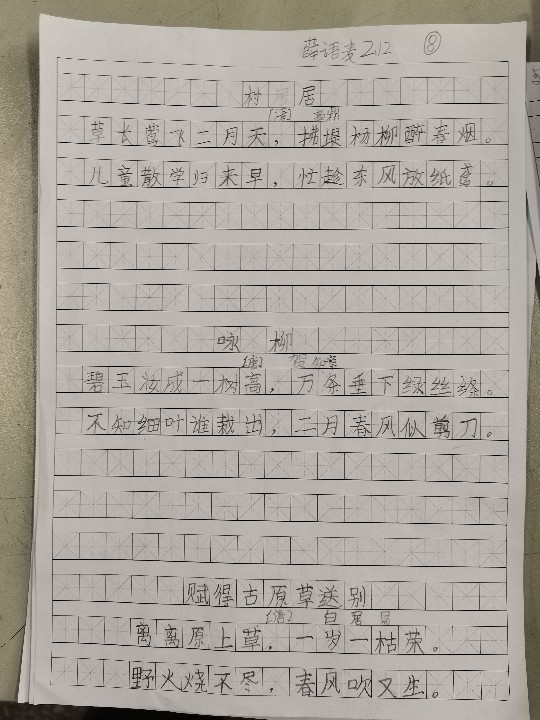 薛语麦 2.12 ⑧
村居
[清] 高鼎
草长莺飞二月天，拂堤杨柳醉春烟。
儿童散学归来早，忙趁东风放纸鸢。
咏柳
[唐] 贺知章
碧玉妆成一树高，万条垂下绿丝绦。
不知细叶谁裁出，二月春风似剪刀。
赋得古原草送别
[唐] 白居易
离离原上草，一岁一枯荣。
野火烧不尽，春风吹又生。